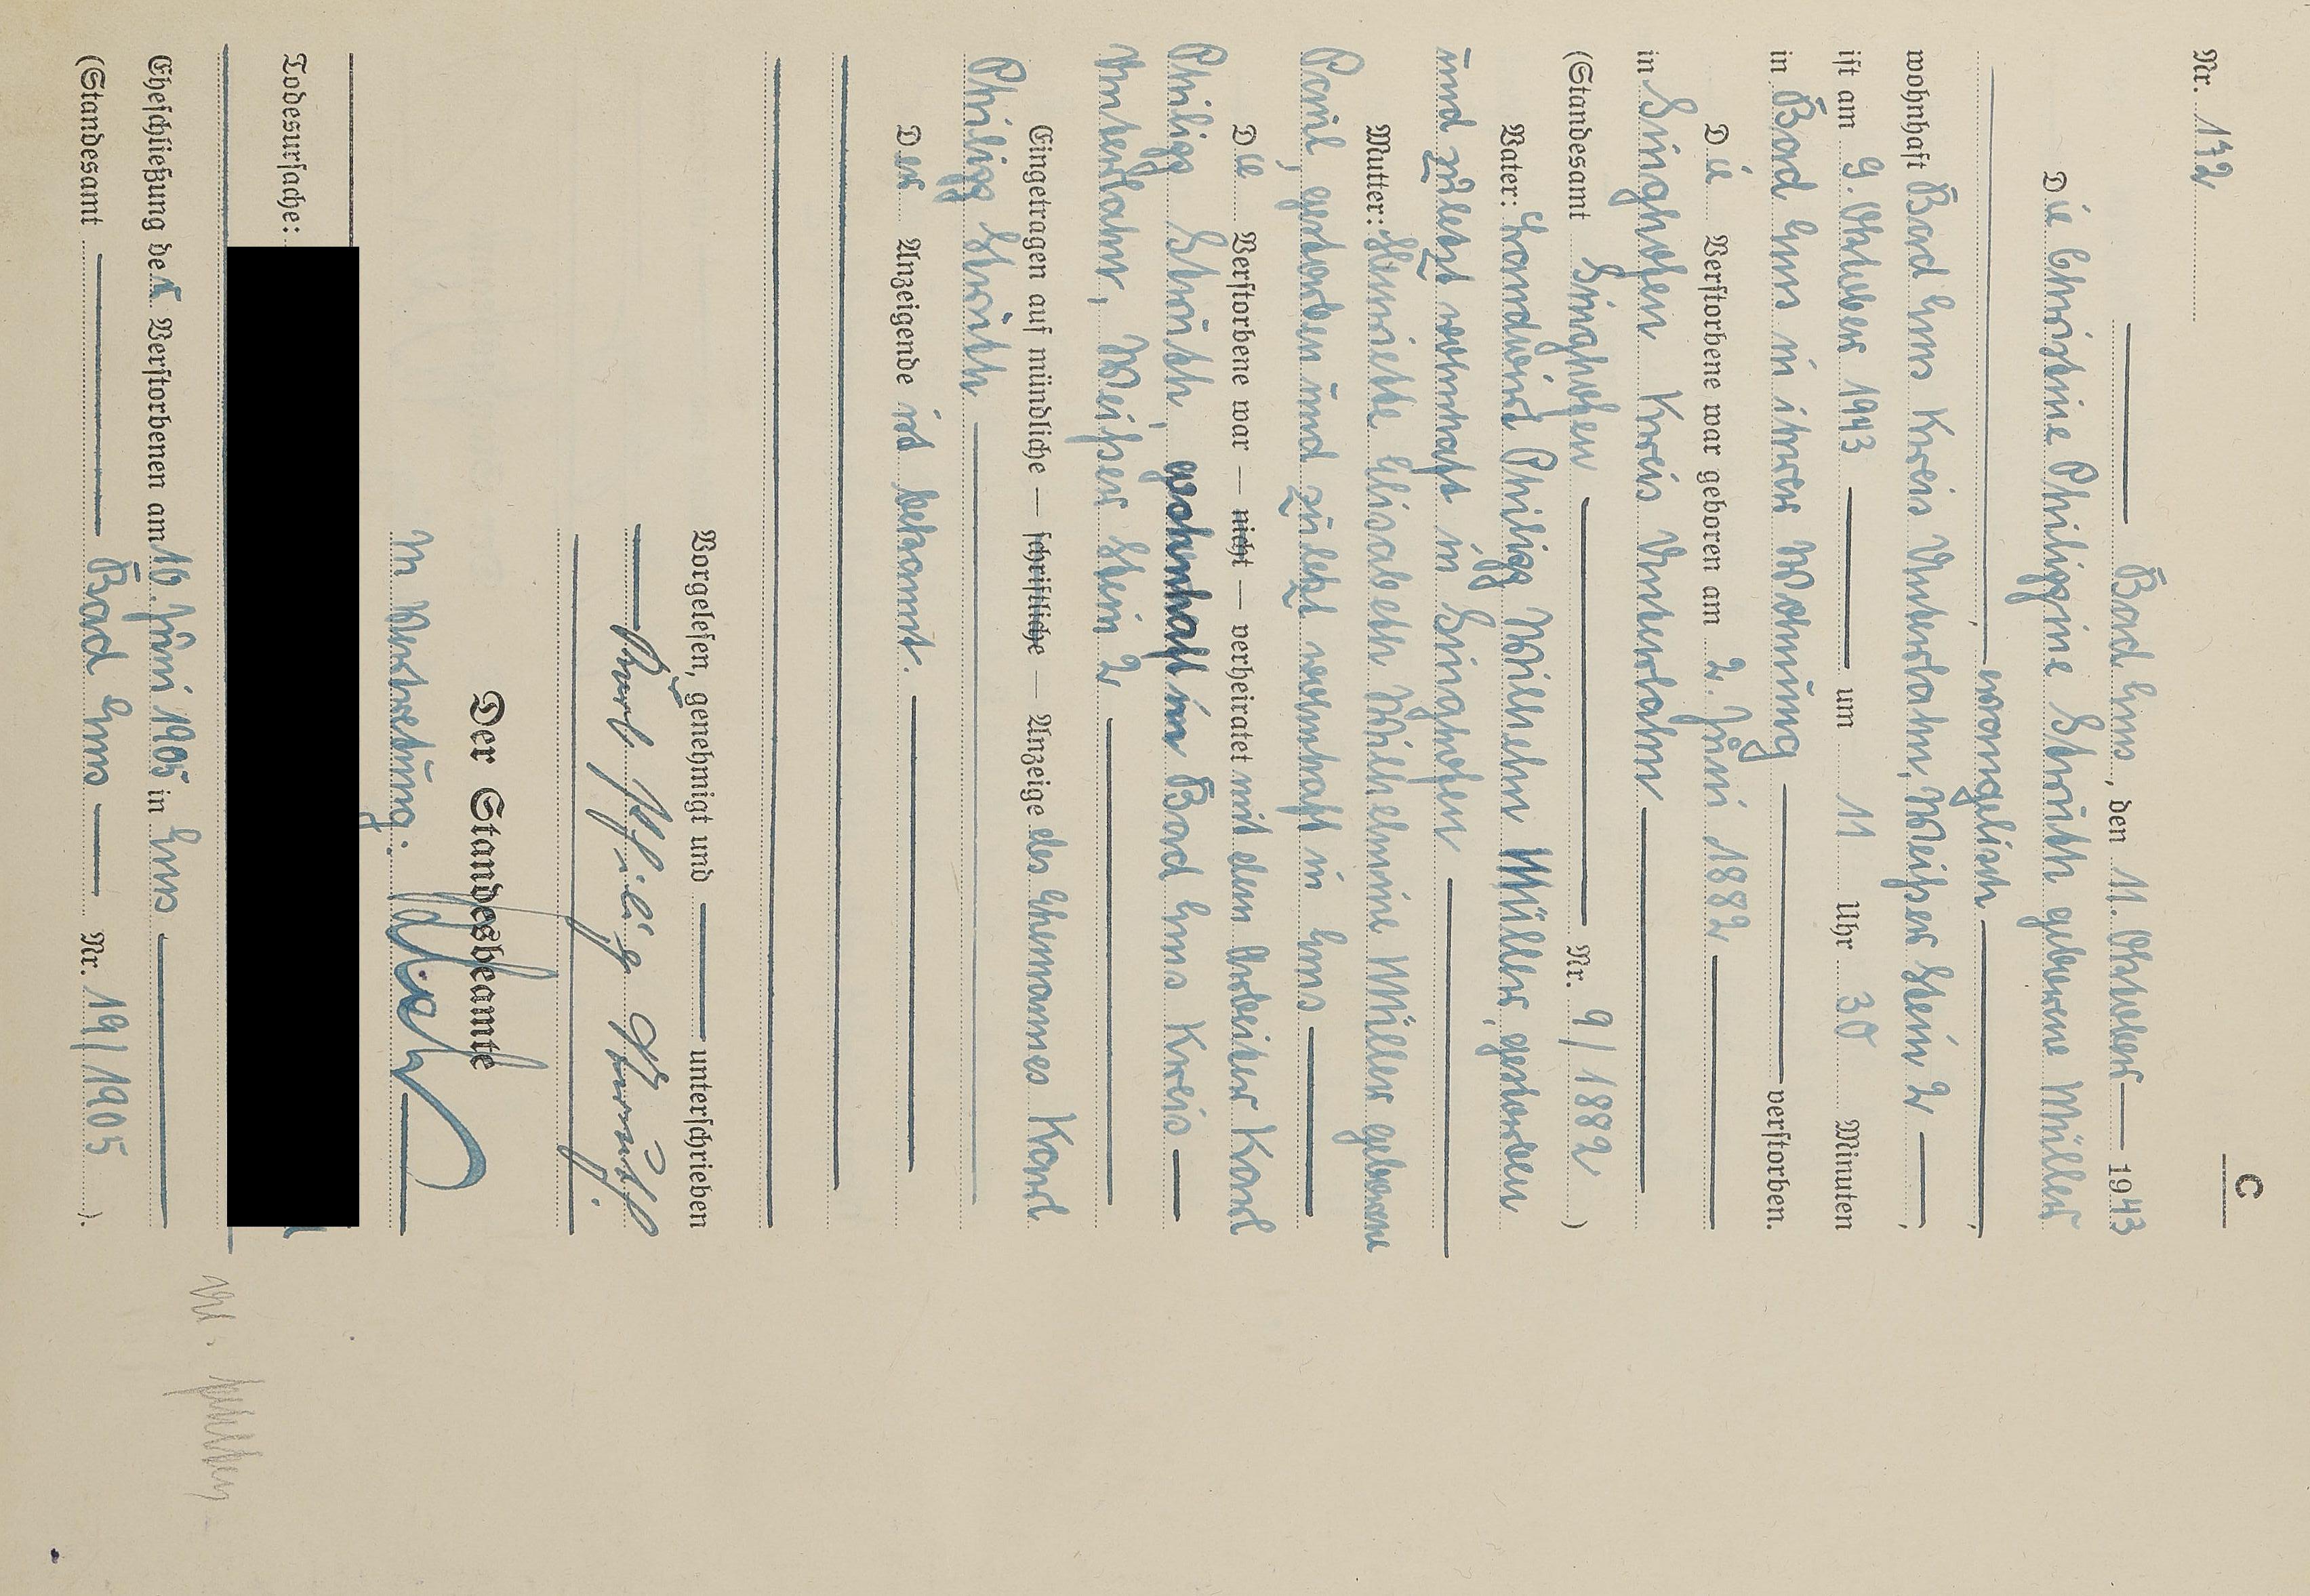 C
Nr. 172
Bad Ems, den 11. Oktober 1943
Die Christine Philippine Strüth geborene Müller
evangelisch
wohnhaft Bad Ems Kreis Unterlahn, Weißer Stein 2
ist am 9. Oktober 1943 um 11 Uhr 30 Minuten
in Bad Ems in ihrer Wohnung verstorben.
Die Verstorbene war geboren am 2. Juni 1882
in Singhofen Kreis Unterlahn
(Standesamt Singhofen Nr. 9/1882)
Vater: Landwirt Philipp Wilhelm Müller, gestorben
und zuletzt wohnhaft in Singhofen
Mutter: Henriette Elisabeth Wilhelmine Müller geborene
Paul, gestorben und zuletzt wohnhaft in Ems
Die Verstorbene war — nicht — verheiratet mit dem Arbeiter Karl
Philipp Strüth, wohnhaft in Bad Ems Kreis
Unterlahn, Weißer Stein 2
Eingetragen auf mündliche — schriftliche — Anzeige des Ehemannes Karl
Philipp Strüth
Der Anzeigende ist bekannt.
Vorgelesen, genehmigt und unterschrieben
Karl Philipp Strüth.
Der Standesbeamte
In Vertretung:
Todesursache:
Eheschließung der Verstorbenen am 10. Juni 1905 in Ems
(Standesamt Bad Ems Nr. 19/1905).